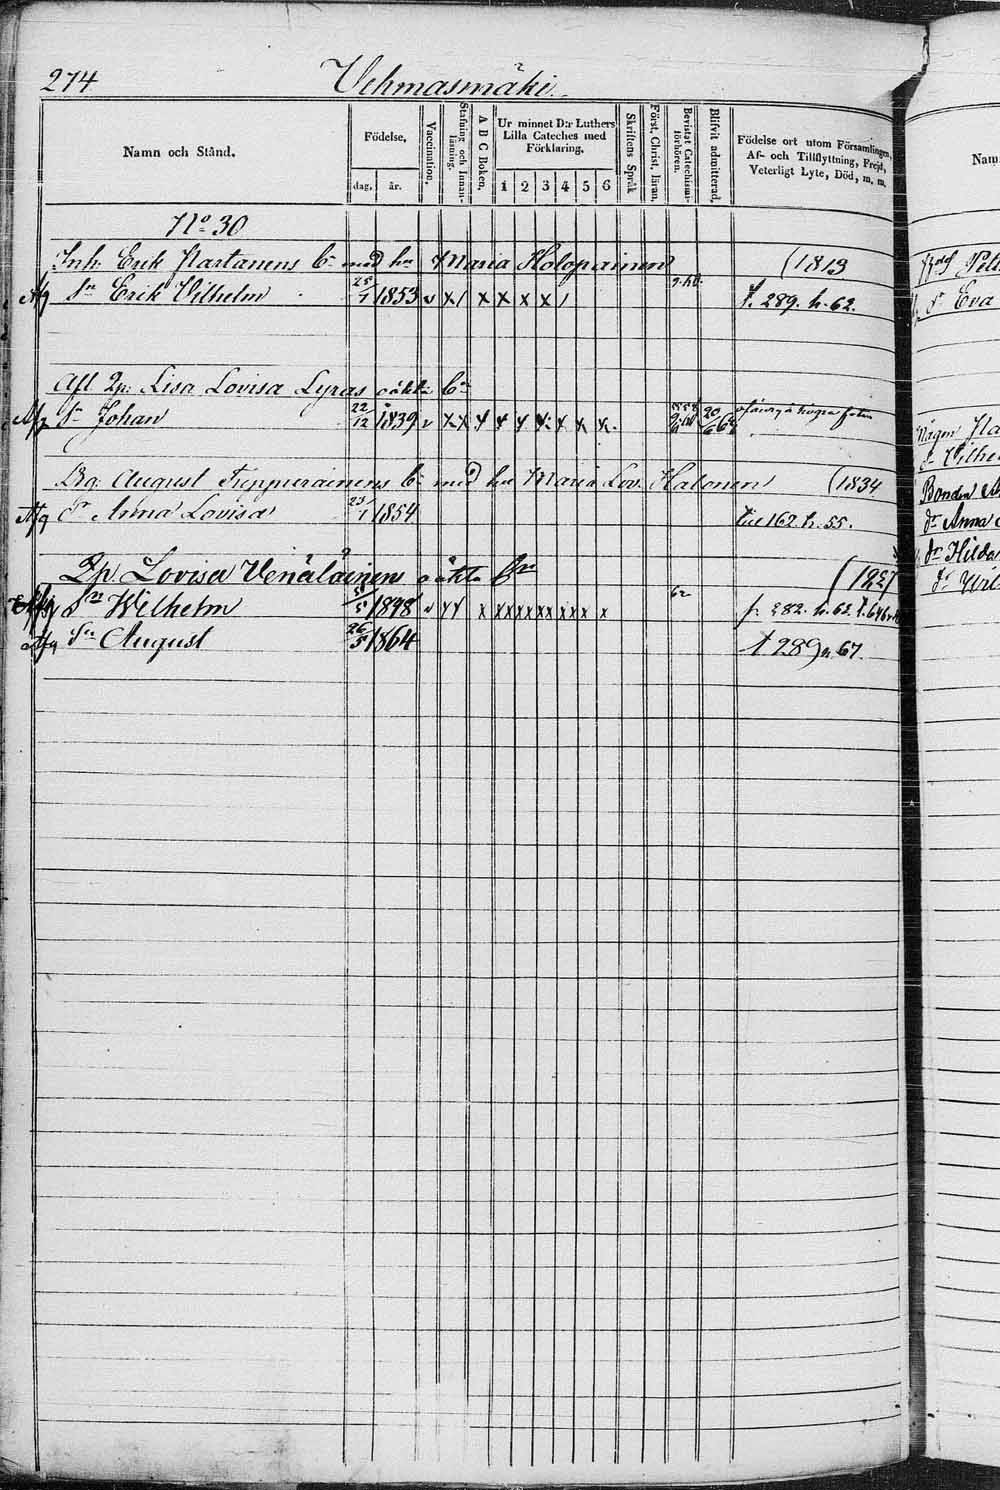 274 Vehmasmäki
Namn och Stånd.
Födelse.
dag. år.
Vaccination.
Stafning och Innanläsning.
A B C Boken.
Ur minnet D:r Luthers Lilla Cateches med Förklaring.
1 2 3 4 5 6
Skriftens Språk
Först. Christ. Läran.
Bevistat Catechismiförhören.
Blifvit admitterad.
Födelse ort utom Församlingen, Af- och Tillflyttning, Frejd, Veterligt Lyte, Död, m. m.
No 30
Inh. Erik Nartanens bn med hu Maria Holopainen (1813
Afg Sn Erik Vilhelm 25/1 1853 v x / x x x x / f. 289. h. 62.
Afl Qp: Lisa Lovisa Lyras oäkta bn
Afg Sn Johan 22/12 1839 v x x x x x x x x x 20/6 6
Drg: August Tuppurainens bn med hu Maria Lov. Halonen (1834
Afg Dr Anna Lovisa 23/1 1854 till 162. h. 55.
Qp Lovisa Venäläinens oäkta Bn (1827
Afg Sn Wilhelm 5/5 1848 v x x x x x x x x x x x x x x 62 p. 282. h. 62.
Afg Sn August 26/5 1864 f 289 h. 67.
Nam
Pett
Eva
Någon
Wilhe
Bonden
dr Anna
dr Hilda